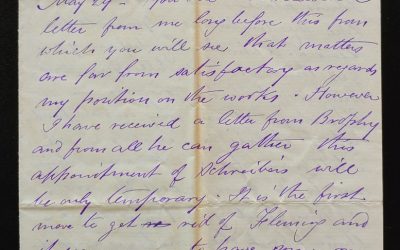 May 29 - You
letter from me long before this from
which you will see that matters
are far from satisfactory as regards
my position on the works. However
I have received a letter from Brophy
and from all he can gather this
appointment of Schreiber's will
be only temporary. It is the first
move to get rid of Fleming and
to have